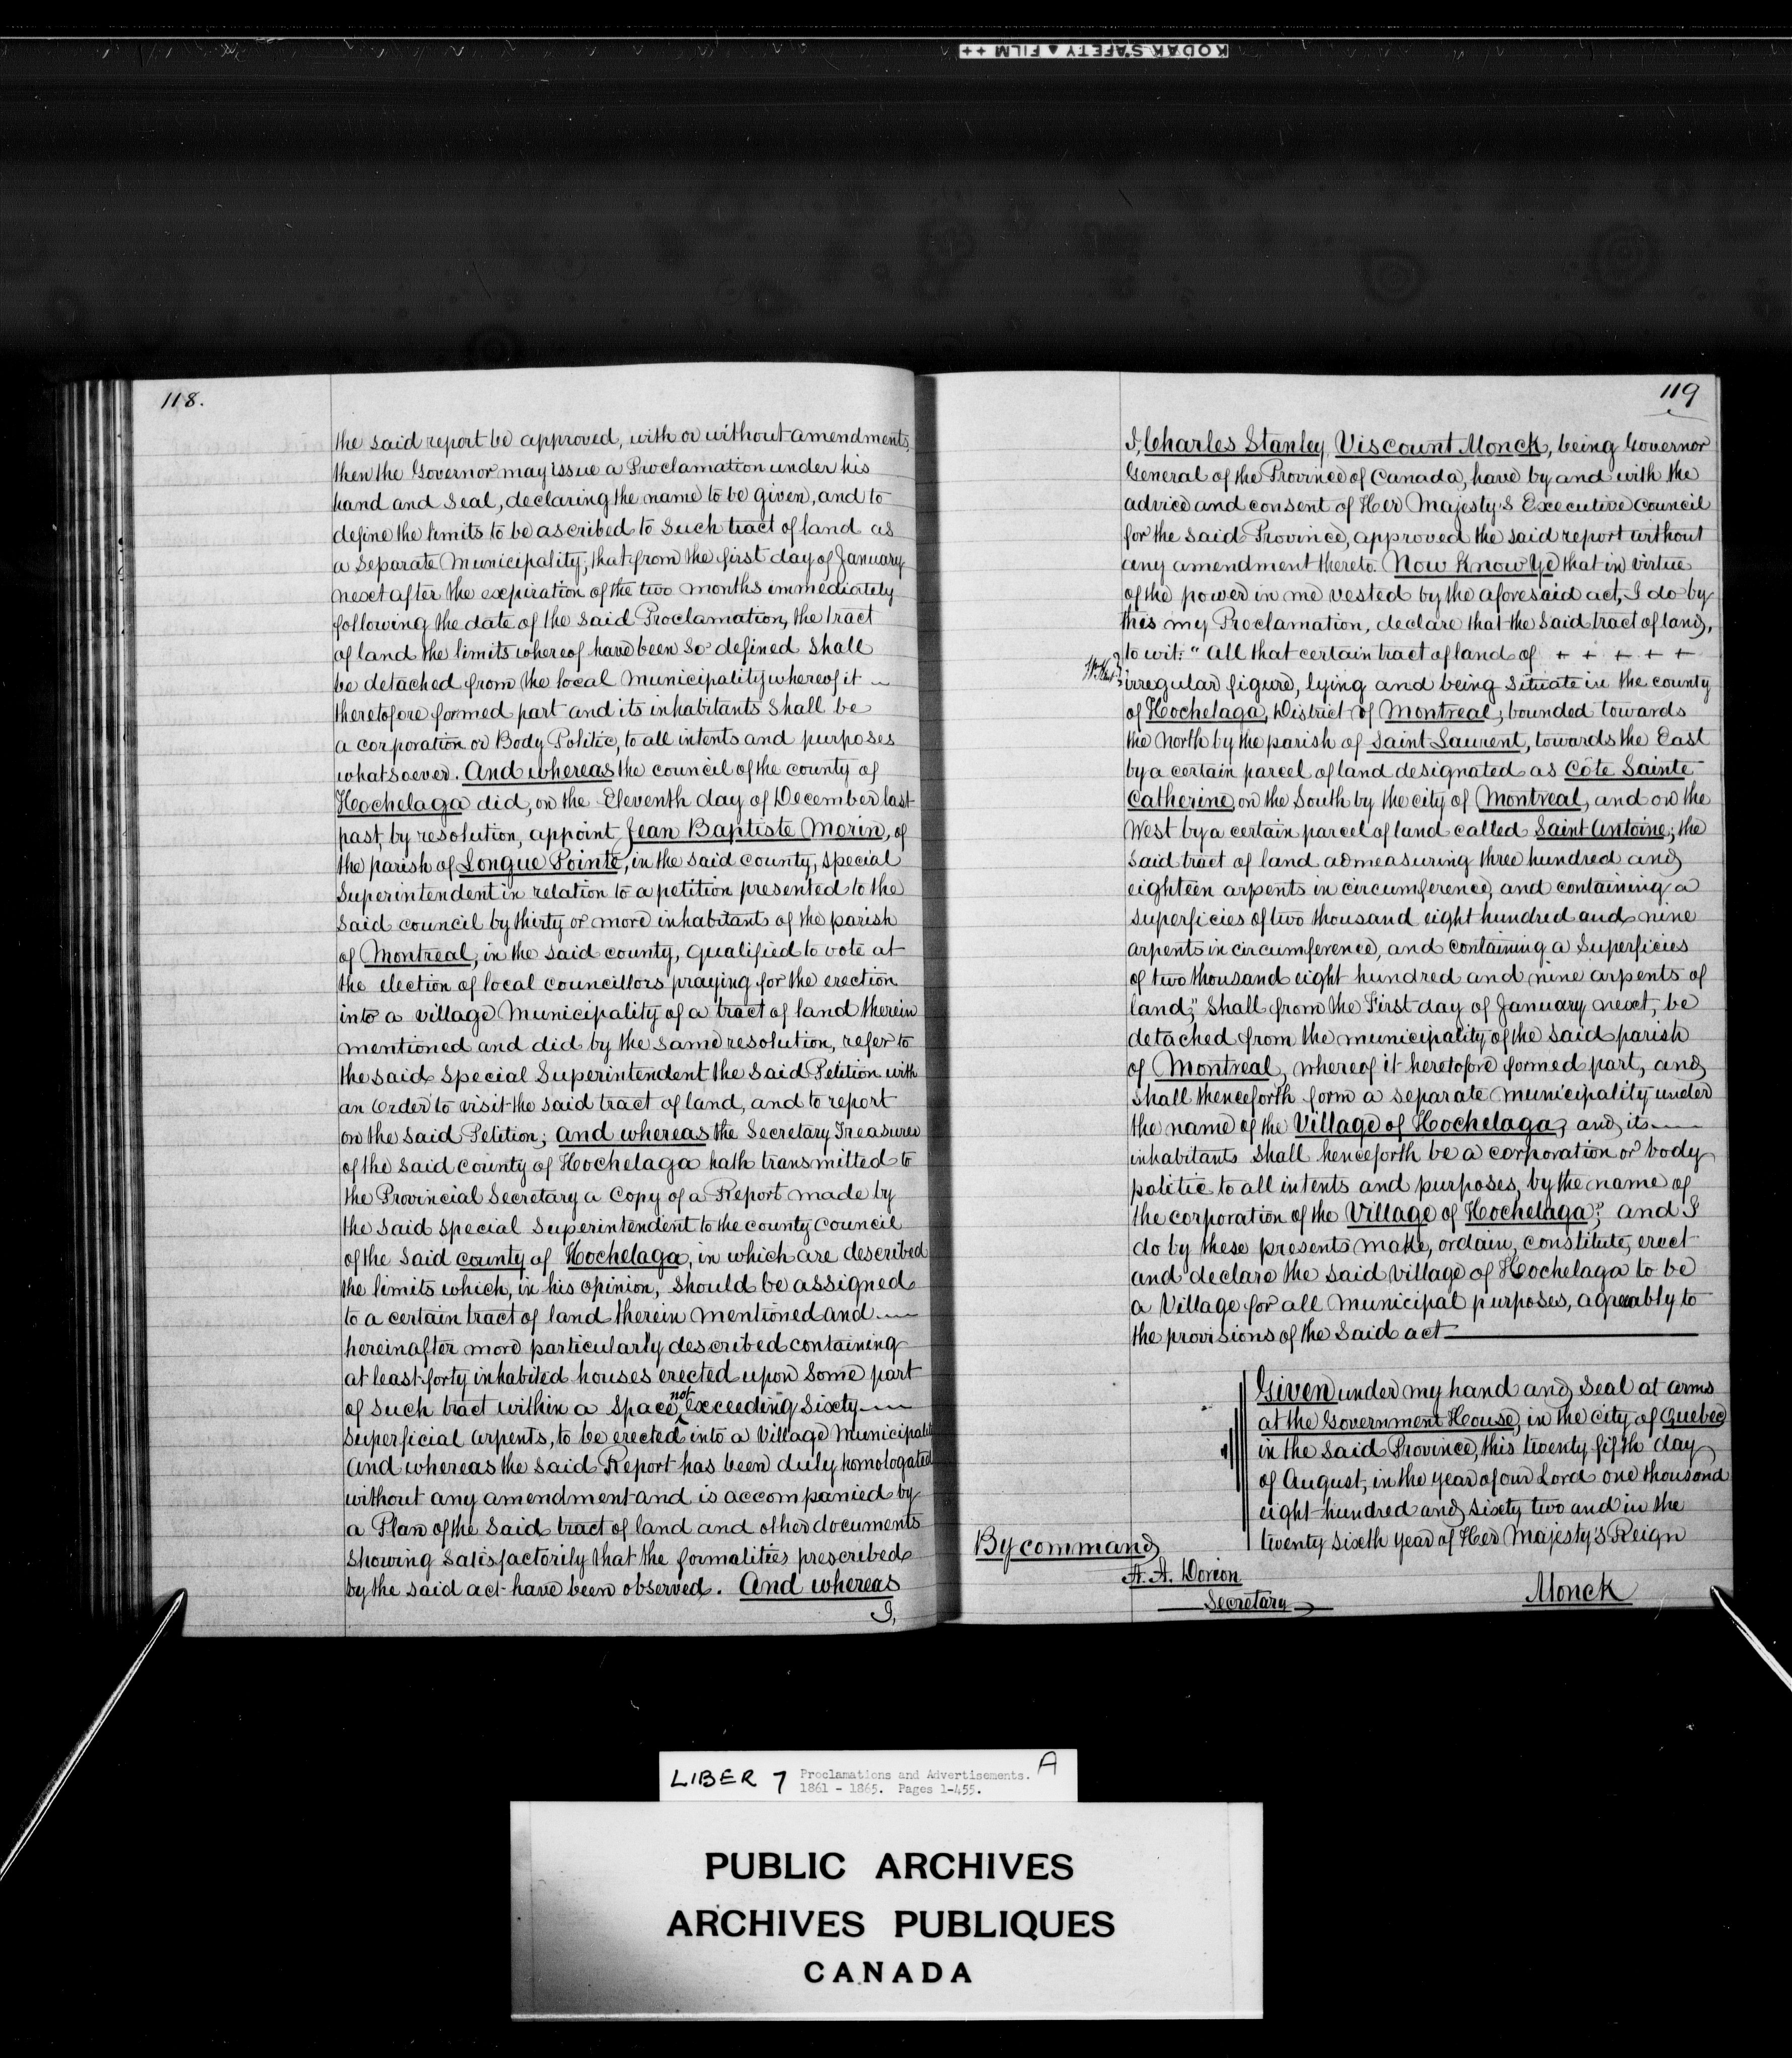 KODAK SAFETY ▲ FILM ++
118.
the said report be approved, with or without amendments,
then the Governor may issue a Proclamation under his
hand and Seal, declaring the name to be given, and to
define the limits to be ascribed to such tract of land as
a Separate Municipality; that from the first day of January
next after the expiration of the two months immediately
following the date of the said Proclamation, the tract
of land the limits whereof have been so defined shall
be detached from the local Municipality whereof it
theretofore formed part and its inhabitants shall be
a corporation or Body Politic, to all intents and purposes
whatsoever. And whereas the council of the county of
Hochelaga did, on the Eleventh day of December last
past, by resolution, appoint Jean Baptiste Morin, of
the parish of Longue Pointe, in the said county, special
Superintendent in relation to a petition presented to the
said council by thirty or more inhabitants of the parish
of Montreal, in the said county, qualified to vote at
the election of local councillors praying for the erection
into a village Municipality of a tract of land therein
mentioned and did by the same resolution, refer to
the said Special Superintendent the said Petition with
an Order to visit the said tract of land, and to report
on the said Petition; And whereas the Secretary Treasurer
of the said county of Hochelaga hath transmitted to
the Provincial Secretary a Copy of a Report made by
the said special Superintendent to the county Council
of the said county of Hochelaga, in which are described
the limits which, in his opinion, should be assigned
to a certain tract of land therein mentioned and
hereinafter more particularly described containing
at least forty inhabited houses erected upon some part
of such tract within a space not exceeding sixty
superficial arpents, to be erected into a Village Municipality
And whereas the said Report has been duly homologated
without any amendment and is accompanied by
a Plan of the said tract of land and other documents
showing satisfactorily that the formalities prescribed
by the said act have been observed. And whereas
I,
119
I, Charles Stanley Viscount Monck, being Governor
General of the Province of Canada, have by and with the
advice and consent of Her Majesty's Executive Council
for the said Province, approved the said report without
any amendment thereto. Now Know Ye that in virtue
of the power in me vested by the aforesaid act, I do by
this my Proclamation, declare that the said tract of land,
to wit: "All that certain tract of land of + + + + +
irregular figure, lying and being situate in the county
of Hochelaga, District of Montreal, bounded towards
the North by the parish of Saint Laurent, towards the East
by a certain parcel of land designated as Côte Sainte
Catherine, on the South by the city of Montreal, and on the
West by a certain parcel of land called Saint Antoine; the
said tract of land admeasuring three hundred and
eighteen arpents in circumference, and containing a
superficies of two thousand eight hundred and nine
arpents in circumference, and containing a superficies
of two thousand eight hundred and nine arpents of
land;" shall from the First day of January next, be
detached from the municipality of the said parish
of Montreal, whereof it heretofore formed part, and
shall thenceforth form a separate municipality under
the name of the Village of Hochelaga, and its
inhabitants shall henceforth be a corporation or body
politic to all intents and purposes, by the name of
the corporation of the Village of Hochelaga;" and I
do by these presents make, ordain, constitute, erect
and declare the said village of Hochelaga to be
a Village for all municipal purposes, agreeably to
the provisions of the said act
Given under my hand and Seal at arms
at the Government House, in the city of Quebec
in the said Province, this twenty fifth day
of August, in the year of our Lord one thousand
eight hundred and sixty two and in the
twenty sixth year of Her Majesty's Reign
By command
A. A. Dorion
Secretary
Monck
LIBER 7 Proclamations and Advertisements. A
1861 - 1865. Pages 1-455.
PUBLIC ARCHIVES
ARCHIVES PUBLIQUES
CANADA